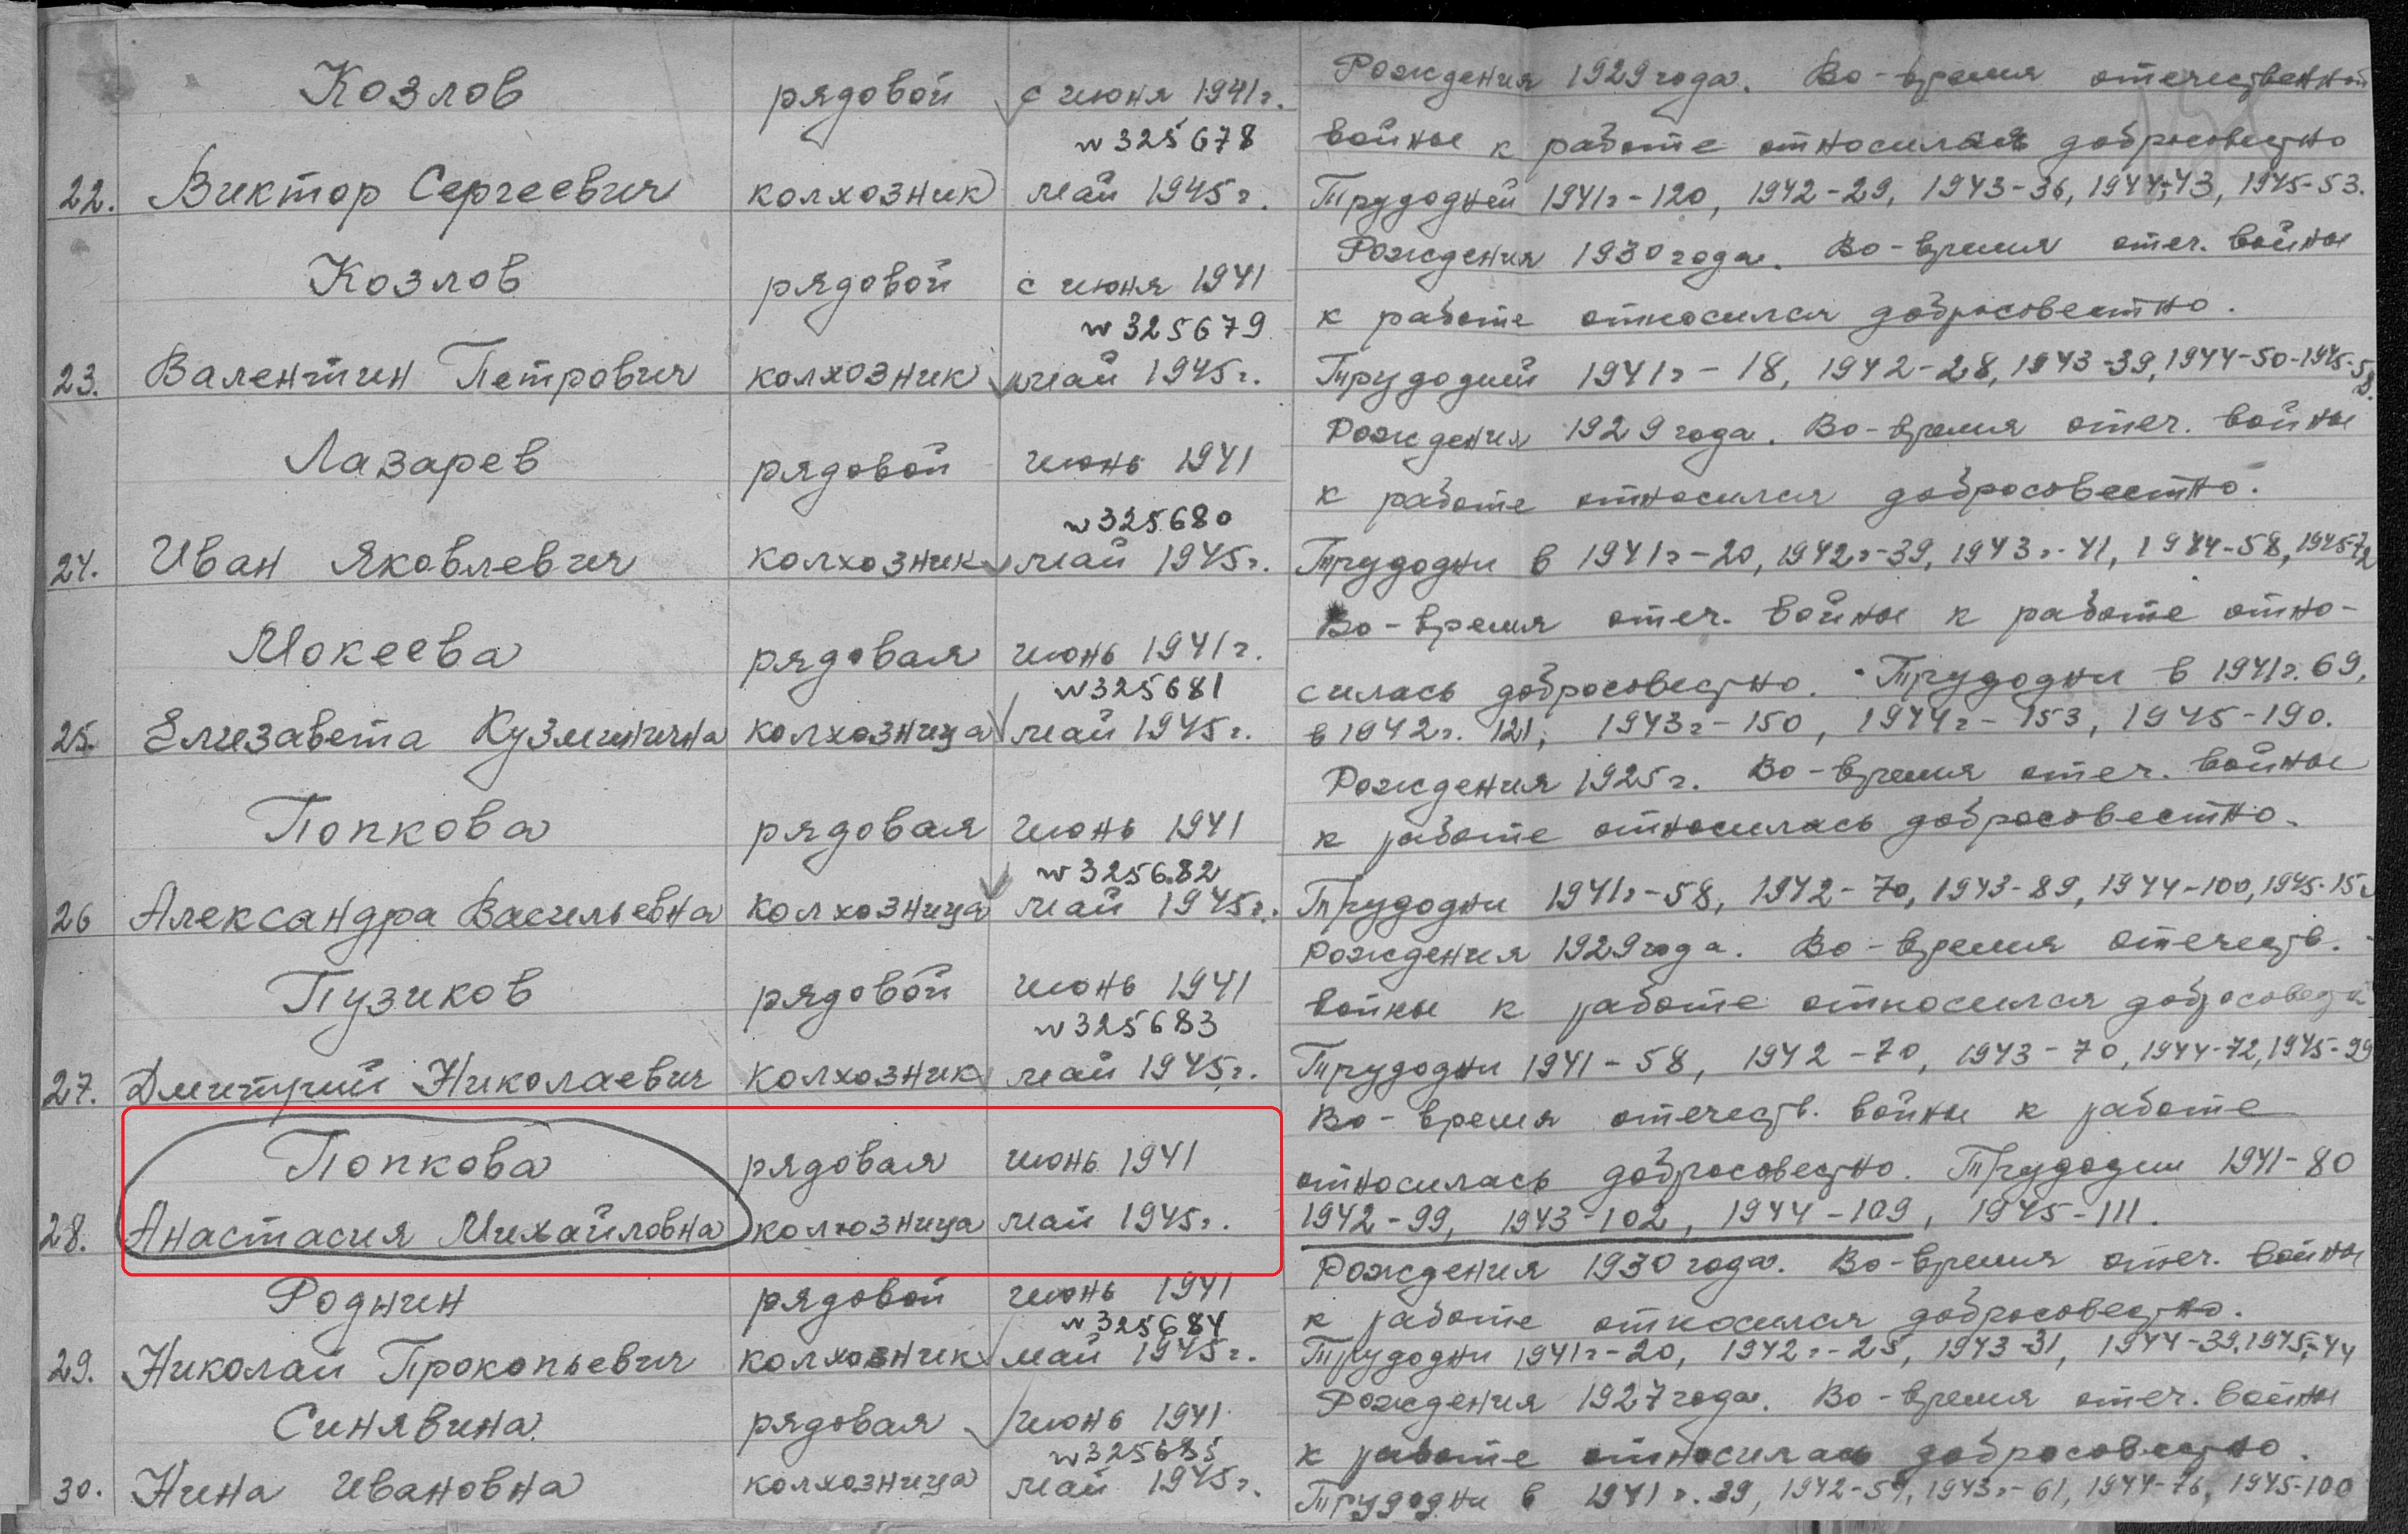 Козлов рядовой с июня 1941г. Рождения 1929 года. Во-время отечественной
№325678 войны к работе относился добросовестно
22. Виктор Сергеевич колхозник май 1945г. Трудодней 1941г-120, 1942-29, 1943-36, 1944-43, 1945-53.
Козлов рядовой с июня 1941 Рождения 1930 года. Во-время отеч. войны
№325679 к работе относился добросовестно.
23. Валентин Петрович колхозник май 1945г. Трудодней 1941г-18, 1942-28, 1943-39, 1944-50-1945-58.
Лазарев рядовой июнь 1941 Рождения 1929 года. Во-время отеч. войны
№325680 к работе относился добросовестно.
24. Иван Яковлевич колхозник май 1945г. Трудодни в 1941г-20, 1942г-39, 1943г-41, 1944-58, 1945-72
Мокеева рядовая июнь 1941г. Во-время отеч. войны к работе отно-
№325681 силась добросовестно. Трудодни в 1941г. 69,
25. Елизавета Кузминична колхозница май 1945г. в 1942г. 121, 1943г-150, 1944г-153, 1945-190.
Попкова рядовая июнь 1941 Рождения 1925г. Во-время отеч. войны
№325682 к работе относилась добросовестно.
26 Александра Васильевна колхозница май 1945г. Трудодни 1941г-58, 1942-70, 1943-89, 1944-100, 1945-15
Пузиков рядовой июнь 1941 Рождения 1929 года. Во-время отечеств.
№325683 войны к работе относился
27. Дмитрий Николаевич колхозник май 1945г. Трудодни 1941-58, 1942-70, 1943-70, 1944-72, 1945-99
Попкова рядовая июнь 1941 Во-время отечеств. войны к работе
относилась добросовестно. Трудодни 1941-80
28. Анастасия Михайловна колхозница май 1945г. 1942-99, 1943-102, 1944-109, 1945-111.
Роднин рядовой июнь 1941 Рождения 1930 года. Во-время отеч. войны
№325684 к работе относился добросовестно.
29. Николай Прокопьевич колхозник май 1945г. Трудодни 1941г-20, 1942г-25, 1943-31, 1944-39, 1945-44
Синявина рядовая июнь 1941 Рождения 1927 года. Во-время отеч. войны
№325685 к работе относилась добросовестно.
30. Нина Ивановна колхозница май 1945г. Трудодни в 1941г. 39, 1942-59, 1943г-61, 1944-76, 1945-100